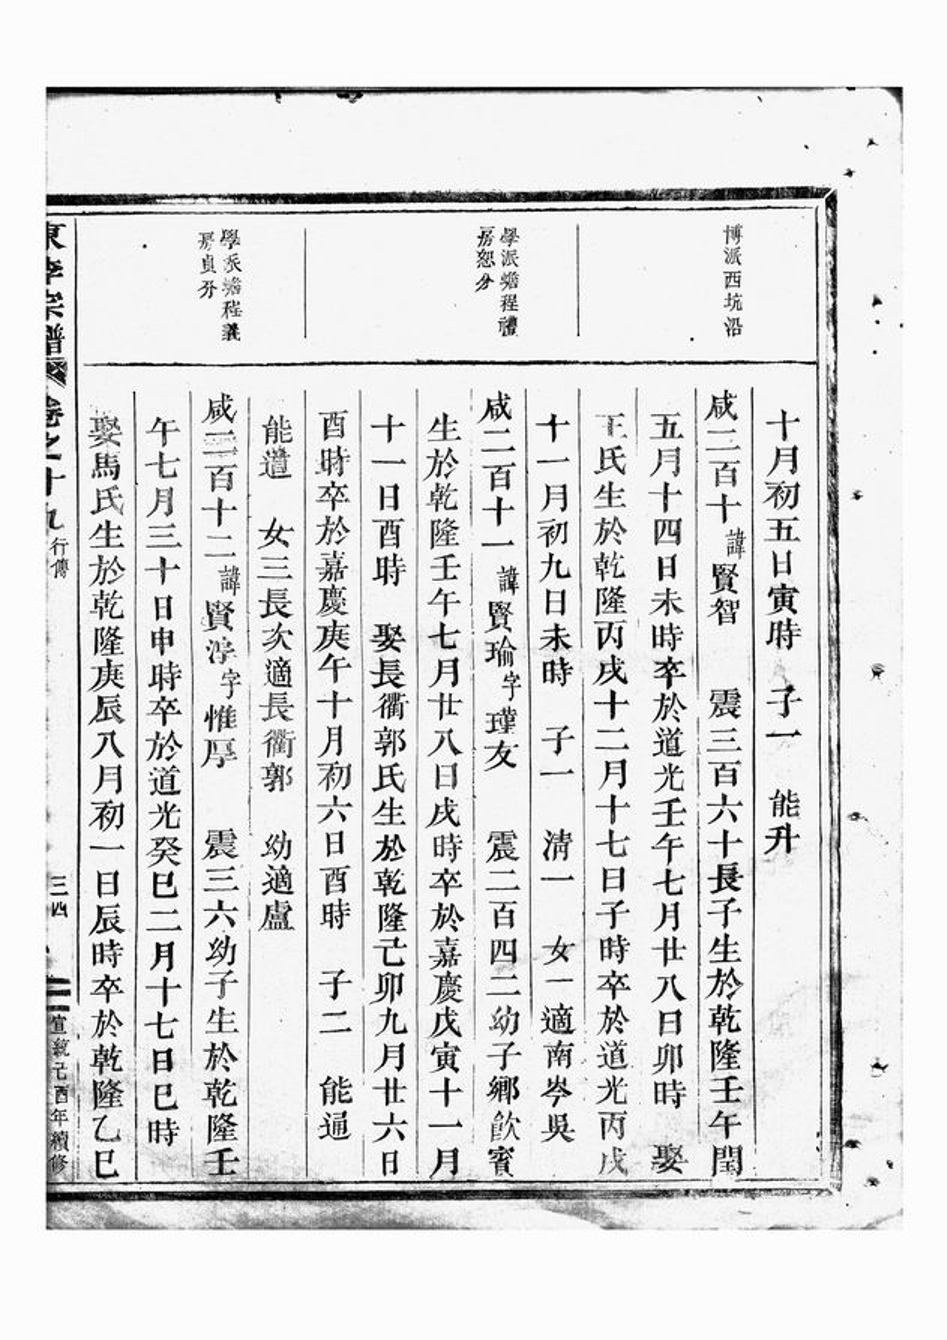 博派西坑沿
十月初五日寅時　子一　能升
咸二百十諱賢智　震三百六十長子生於乾隆壬午閏
五月十四日未時卒於道光壬午七月廿八日卯時　娶
王氏生於乾隆丙戌十二月十七日子時卒於道光丙戌
十一月初九日未時　子一　淸一　女一適南岑吳
學派蟾程禮
房恕分
咸二百十一諱賢瑜字瑾友　震二百四二幼子鄉飮賓
生於乾隆壬午七月廿八日戌時卒於嘉慶戊寅十一月
十一日酉時　娶長衢郭氏生於乾隆己卯九月廿六日
酉時卒於嘉慶庚午十月初六日酉時　子二　能逼
能遭　女三長次適長衢郭　幼適盧
學派蟾程義
房貞分
咸二百十二諱賢淳字惟厚　震三六幼子生於乾隆壬
午七月三十日申時卒於道光癸巳二月十七日巳時
娶馬氏生於乾隆庚辰八月初一日辰時卒於乾隆乙巳
東李宗譜
卷之十九行傳
三四
宣統己酉年續修